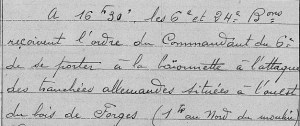 A 16h30, les 6e et 24e Bons
reçoivent l'ordre du Commandant du 6e
de se porter à la baïonnette à l'attaque
des tranchées allemandes situées à l'ouest
du bois de Forges (1 Km au Nord du moulin)